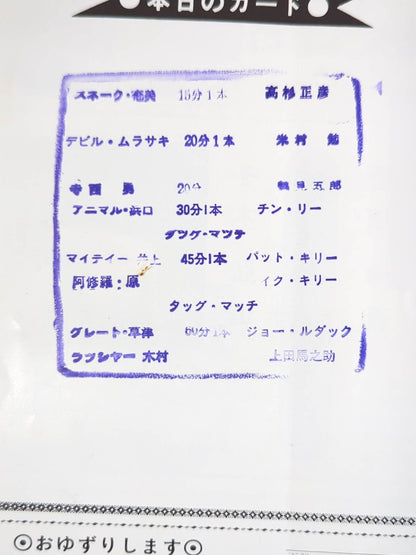 本日のカード
スネーク・奄美 15分1本 高杉正彦
デビル・ムラサキ 20分1本 米村 勉
寺西 勇 20分 鶴見五郎
アニマル・浜口 30分1本 チン・リー
タッグ・マッチ
マイティー 井上 45分1本 パット・キリー
阿修羅・原 イク・キリー
タッグ・マッチ
グレート・草津 60分1本 ジョー・ルダック
ラッシャー 木村 上田馬之助
◉おゆずりします◉